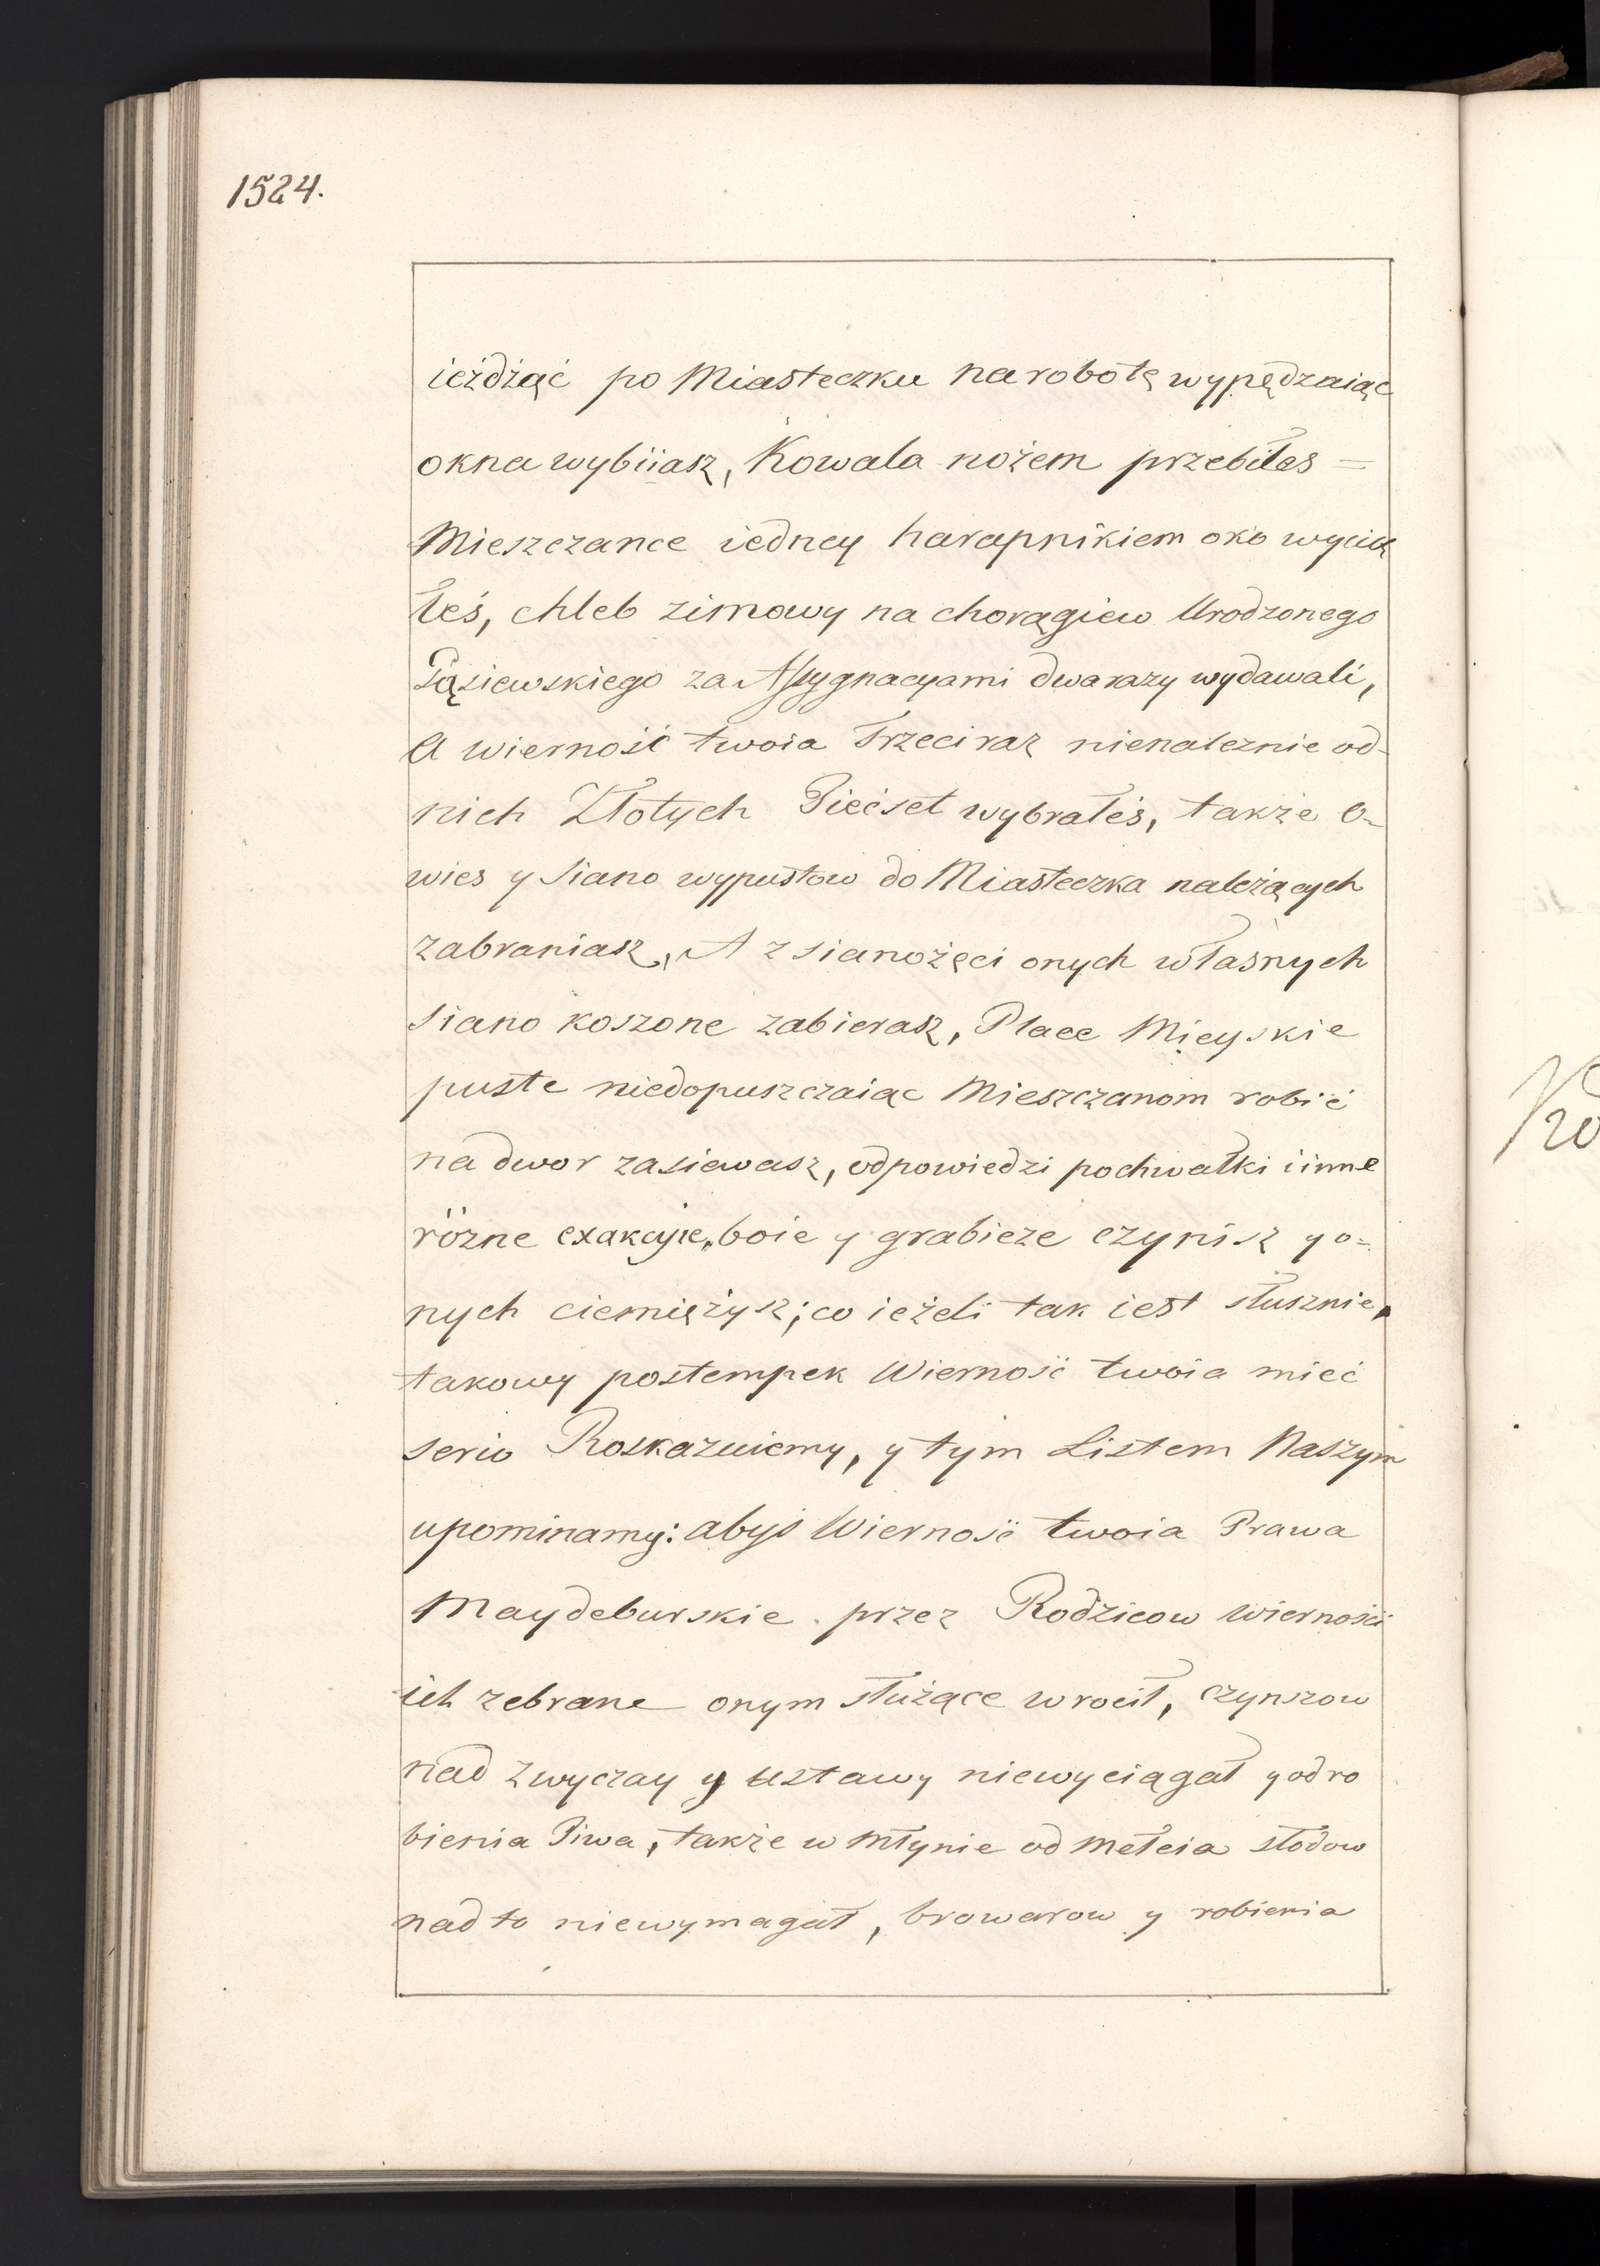 1524.
ieżdżąć po Miasteczku na robotę wypędzaiąc
okna wybiiasz, Kowala nożem przebiłes =
Mieszczance iedney harapnikiem oko wycią
łeś, chleb zimowy na chorągiew Urodzonego
Pąsiewskiego za Assygnacyami dwarazy wydawali,
A wierność twoia Trzeci raz nienależnie od-
nich Złotych Piećset wybrałeś, także O-
wies y siano wypustow do Miasteczka należących
zabraniasz, A z sianożęci onych własnych
siano koszone zabierasz, Place Mieyskie
puste niedopuszczaiąc Mieszczanom robić
na dwor zasiewasz, odpowiedzi pochwałki i inne
różne exakcyie, boie y grabieze czynisz y o=
nych ciemiężysz; co ieżeli tak iest słusznie,
takowy postempek Wierność twoia mieć
serio Roskazuiemy, y tym Listem Naszym
upominamy: abyś Wierność twoia Prawa
Maydeburskie przez Rodzicow wierności
ich zebrane onym służące wrocił, czynszow
nad zwyczay y ustawy niewyciągał y od ro
bienia Piwa, także w młynie od mełcia słodow
nad to niewymagał, browarow y robienia
Ro